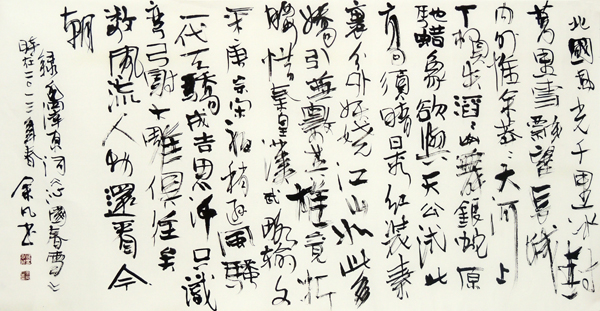 北國風光千里冰封
萬里雪飄望長城
内外惟余莽莽大河上
下頓失滔滔山舞銀蛇原
馳蠟象欲與天公試比
高須晴日看紅裝素
裹分外妖嬈江山如此多
嬌引無數英雄競折
腰惜秦皇漢武略輸文
采唐宗宋祖稍遜風騷
一代天驕成吉思汗只識
彎弓射大雕俱往矣
數風流人物還看今
朝
録毛澤東詞沁園春雪
時在二〇一二年春